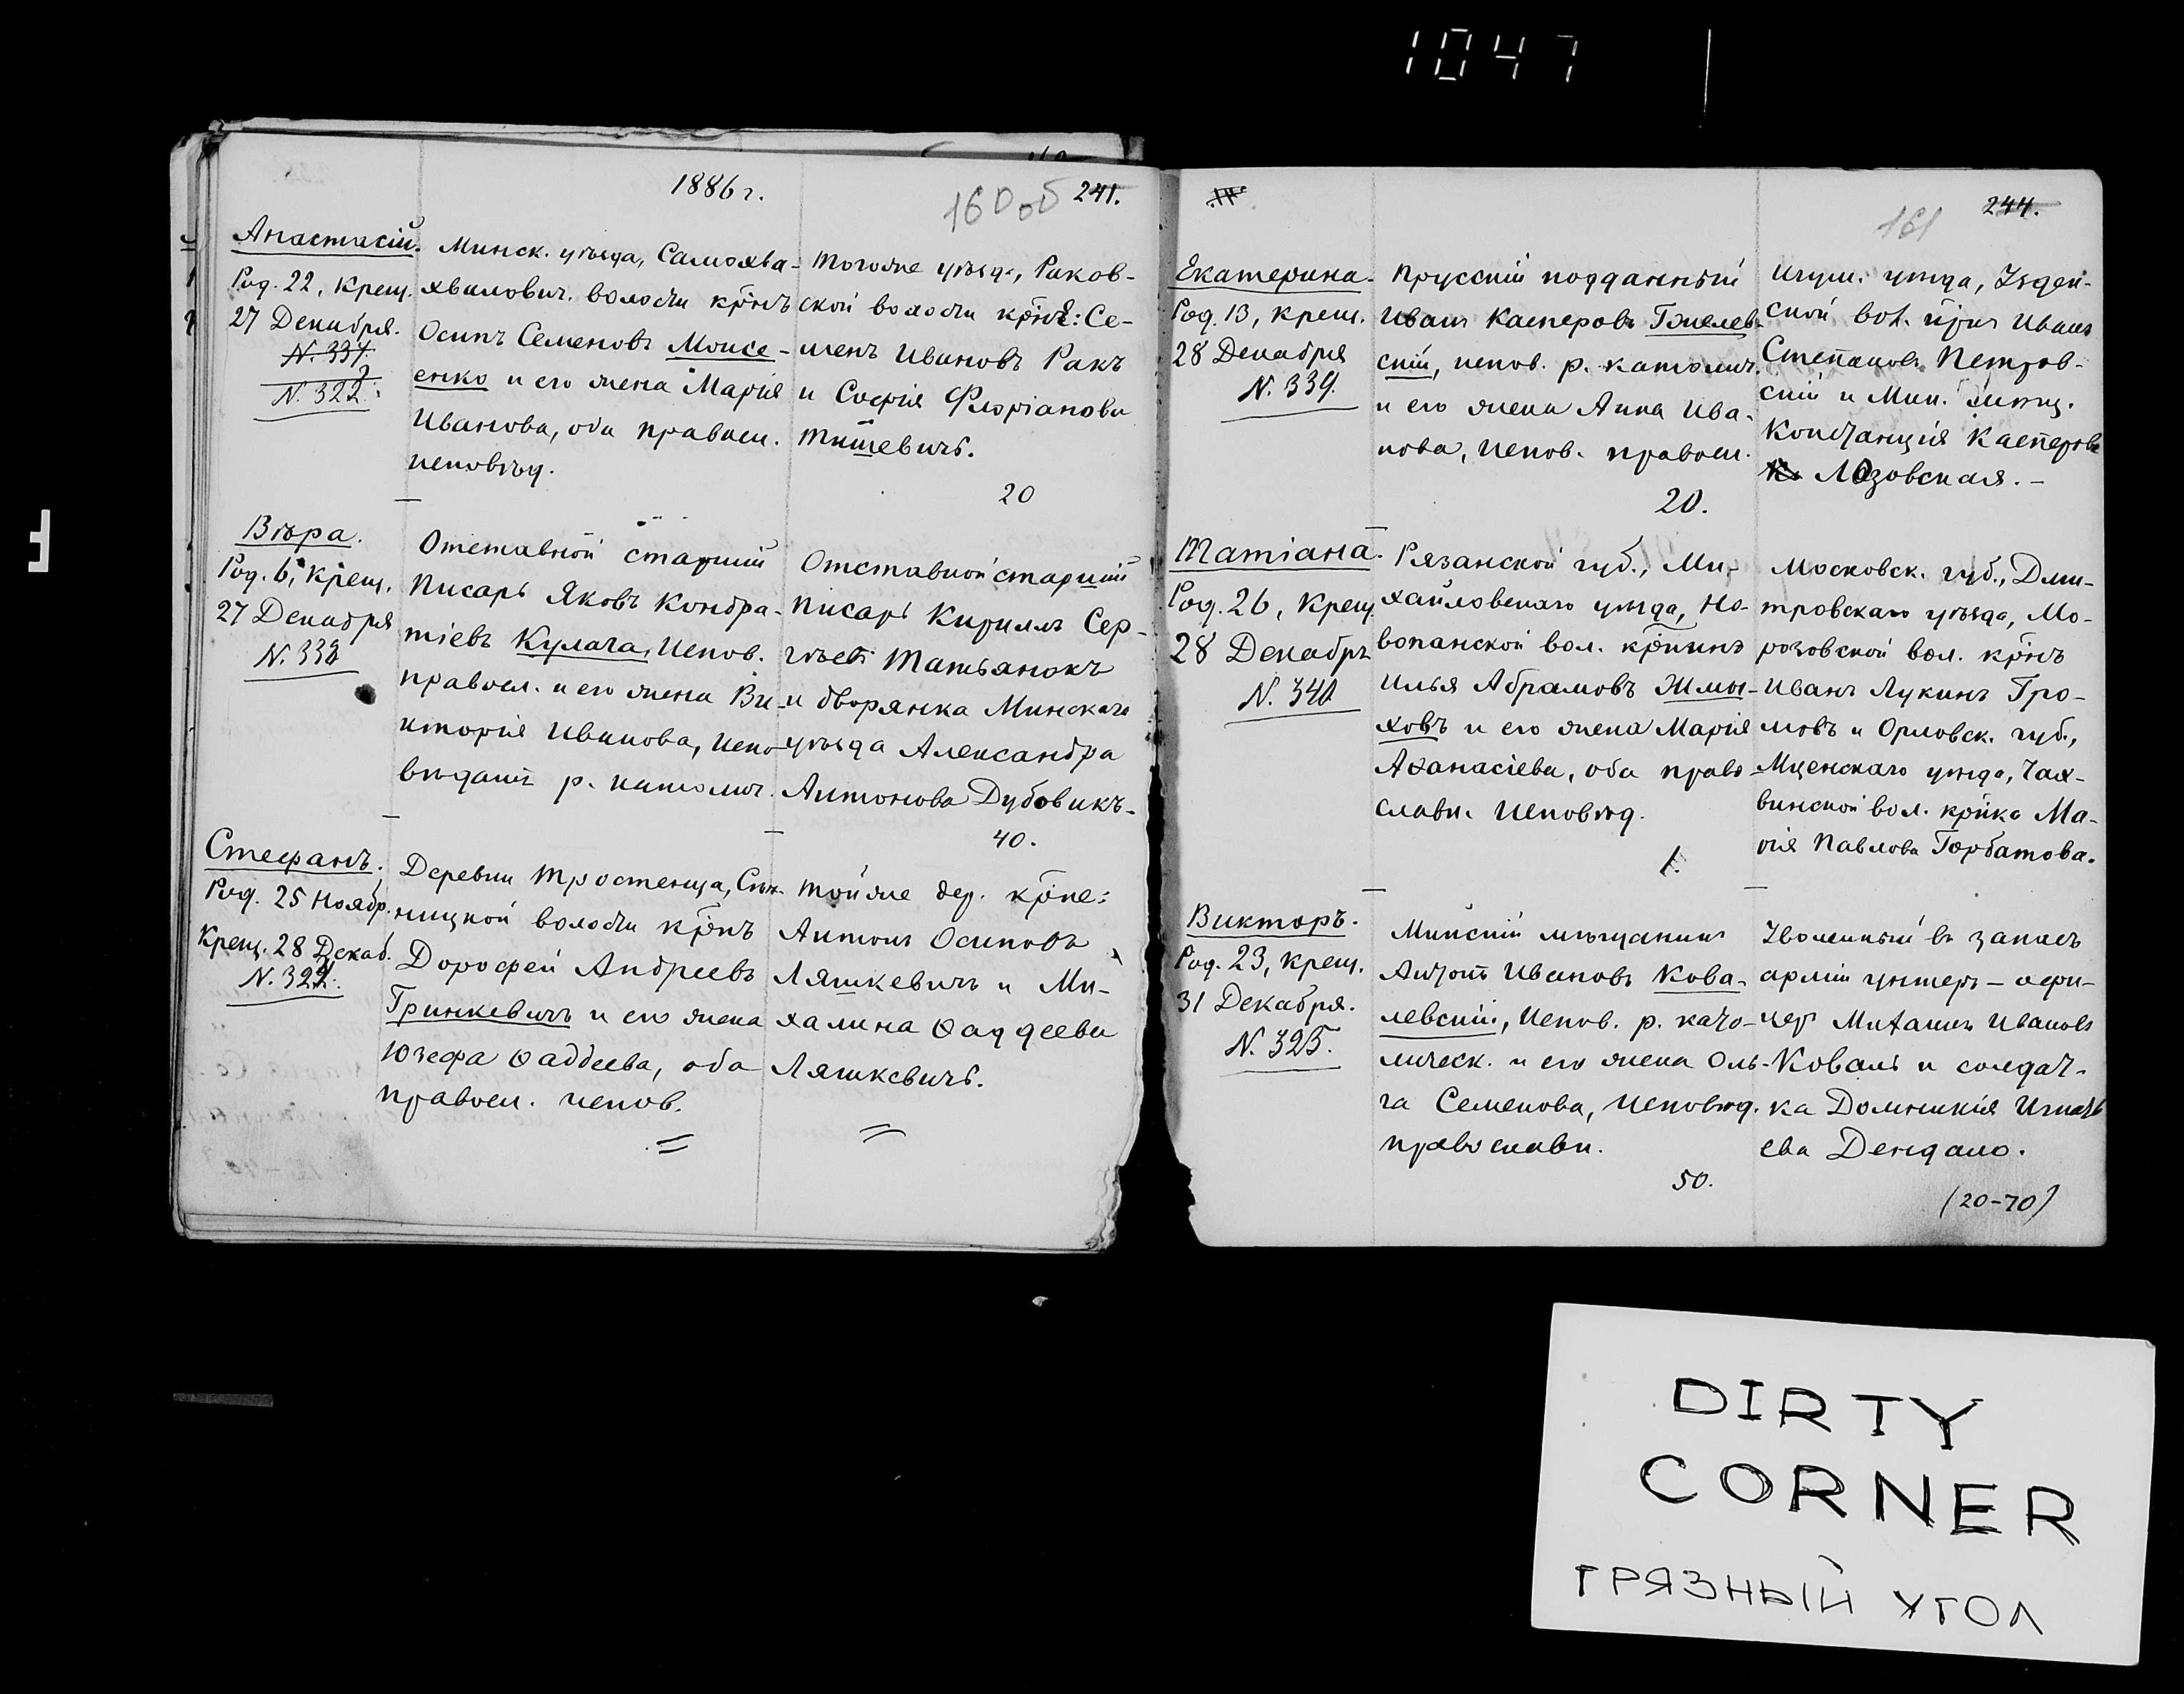 1047
1886 г.
160 об 241.
Анастасій.
Род. 22, Крещ.
27 Декабря.
N. 337.
N. 322.
Минск. уѣзда, Самохва-
хвалович. волости кр̃нъ
Осипъ Семеновъ Моисе-
енко и его жена Марія
Иванова, оба правосл.
исповѣд.
тогоже уѣзда, Раков-
ской волости кр̃не: Се-
менъ Ивановъ Ракъ
и Софія Флоріанова
Тишевичъ.
20
Вѣра.
Род. 6, Крещ.
27 Декабря
N. 338
Отставной старшій
Писарь Яковъ Кондра-
тіевъ Кулага, испов.
правосл. и его жена Ви-
кторія Иванова, испо-
вѣданія р. католич.
Отставной старшій
писарь Кириллъ Сер-
гѣевъ Татьянокъ
и дворянка Минскаго
уѣзда Александра
Антонова Дубовикъ-
40.
Стефанъ.
Род. 25 Ноябр.
Крещ. 28 Декаб.
N. 324.
Деревни Тростенца, Сѣн-
ницкой волости кр̃нъ
Дорофей Андреевъ
Гринкевичъ и его жена
Юзефа Ѳаддеева, оба
правосл. испов.
тойже дер. кр̃не:
Антонъ Осиповъ
Ляшкевичъ и Ми-
халина Ѳаддеева
Ляшкевичъ.
161 244.
Екатерина.
Род. 13, Крещ.
28 Декабря
N. 339.
Прусскій подданный
Иванъ Касперовъ
скій, испов. р. католич.
и его жена Анна Ива-
нова, испов. правосл.
20.
Игум. уѣзда, Узден-
ской вол. Иванъ
Степановъ Петров-
скій и Мин. мѣщ.
Констанція Касперова
Лозовская. -
Татіана.
Род. 26, Крещ
28 Декабря
N. 340
Рязанской губ., Ми-
хайловскаго уѣзда, Но-
вопанской вол. кр̃нинъ
Илья Абрамовъ Жмы-
ховъ и его жена Марія
Аѳанасіева, оба право-
славн. исповѣд.
1.
Московск. губ., Дми-
тровскаго уѣзда, Мо-
розовской вол. кр̃нъ
Иванъ Лукинъ Гро-
мовъ и Орловск. губ.,
Мценскаго уѣзда, Чах-
винской вол. кр̃нка Ма-
рія Павлова Горбатова.
Викторъ.
Род. 23, Крещ.
31 Декабря.
N. 325.
Минскій мѣщанинъ
Антонъ Ивановъ Кова-
левскій, испов. р. като-
лическ. и его жена Оль-
га Семенова, исповѣд.
православн.
50.
Уволенный въ запасъ
арміи унтеръ-офи-
церъ Михаилъ Ивановъ
Коваль и солдат-
ка Доминикія Игнать
ева Дендало.
(20-70)
DIRTY
CORNER
ГРЯЗНЫЙ УГОЛ